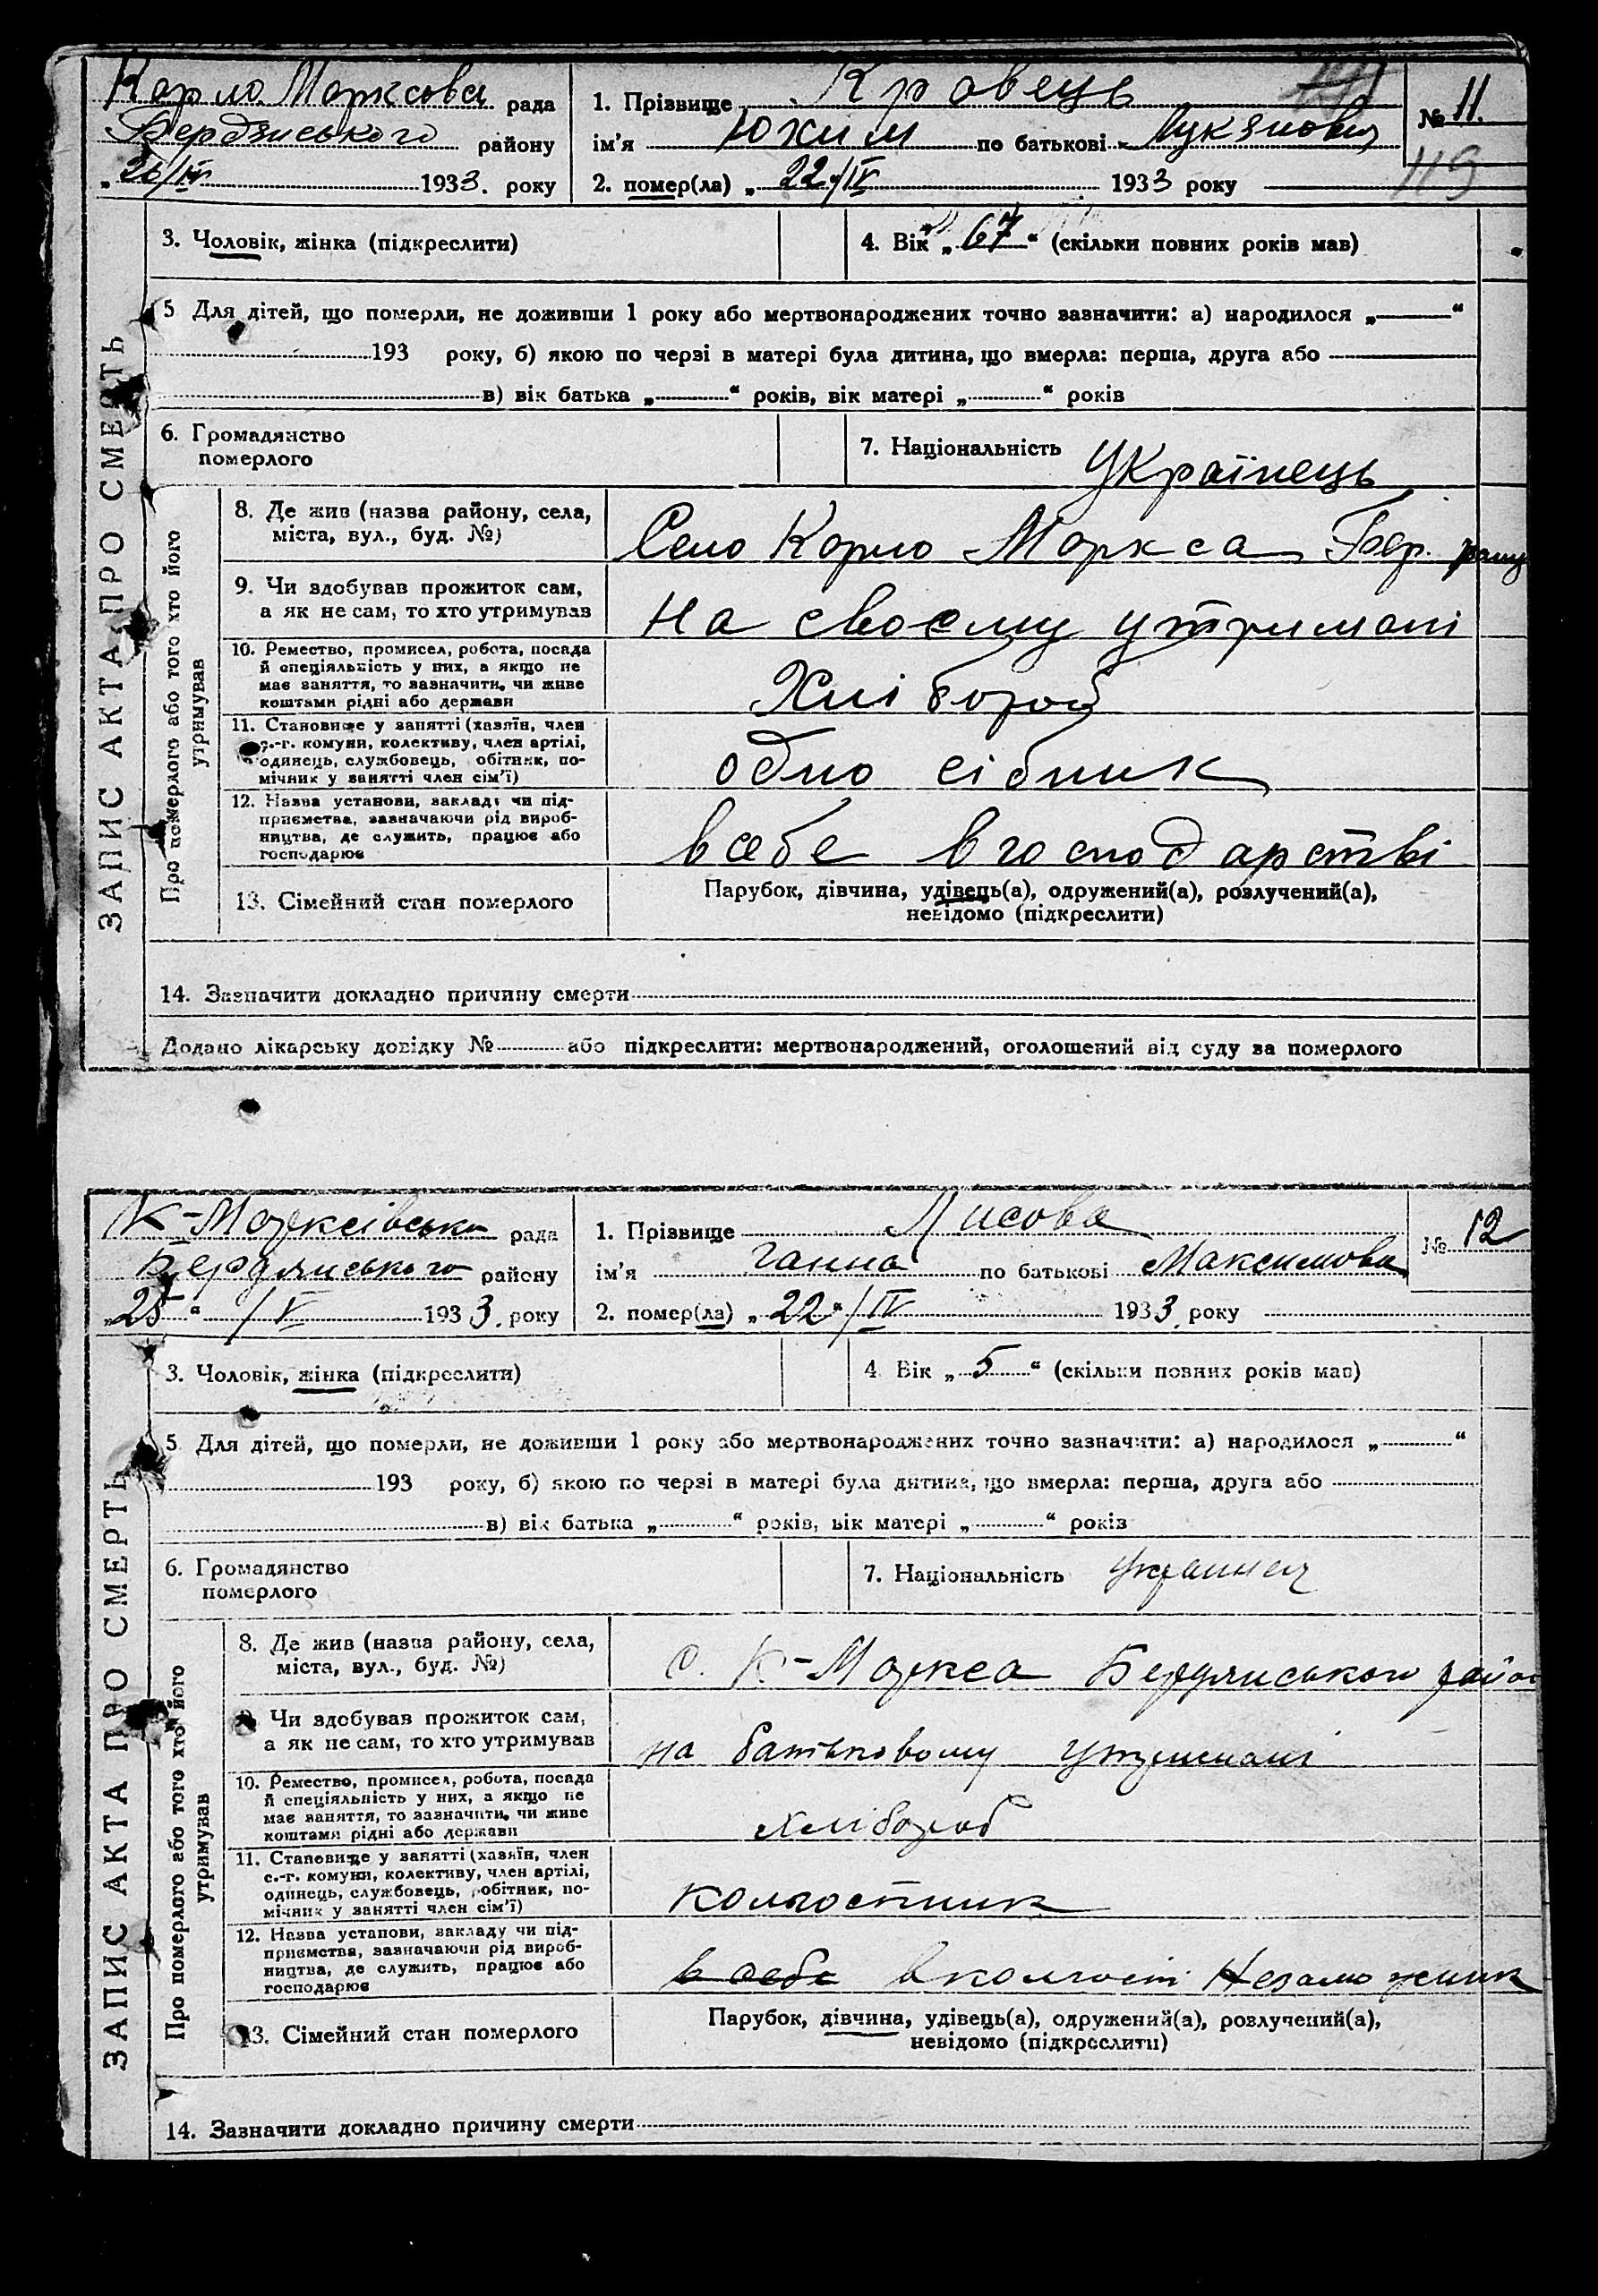 Карло Марксова рада
Бердянського району
„26/IV 1933. року
1. Прізвище Кровець
ім’я Юхим по батькові Лукянович
2. помер(ла) „22“/IV 1933 року
№ 11.
119
3. Чоловік, жінка (підкреслити)
4. Вік „67“ (скільки повних років мав)
5 Для дітей, що померли, не доживши 1 року або мертвонароджених точно зазначити: а) народилося „ “
193 року, б) якою по черзі в матері була дитина, що вмерла: перша, друга або
в) вік батька „ “ років, вік матері „ “ років
6. Громадянство
померлого
7. Національність Українець
ЗАПИС АКТА ПРО СМЕРТЬ
Про померлого або того хто його
утримував
8. Де жив (назва району, села,
міста, вул., буд. №)
Село Карло Маркса Бер.
9. Чи здобував прожиток сам,
а як не сам, то хто утримував
на своєму утримані
10. Ремество, промисел, робота, посада
й спеціяльність у них, а якщо не
має заняття, то зазначити, чи живе
коштами рідні або держави
Хлібороб
11. Становище у занятті (хазяїн, член
с.-г. комуни, колективу, член артілі,
одинець, службовець, робітник, по-
мічник у занятті член сім’ї)
одно сібник
12. Назва установи, закладу чи під-
приємства, зазначаючи рід вироб-
ництва, де служить, працює або
господарює
в себе в господарстві
13. Сімейний стан померлого
Парубок, дівчина, удівець(а), одружений(а), розлучений(а),
невідомо (підкреслити)
14. Зазначити докладно причину смерти
Додано лікарську довідку № або підкреслити: мертвонароджений, оголошений від суду за померлого
К-Марксівська рада
Бердянського району
„25“/V 1933. року
1. Прізвище Лисова
ім’я Ганна по батькові Максимовна
2. помер(ла) „22“/IV 1933. року
№ 12
3. Чоловік, жінка (підкреслити)
4. Вік „5“ (скільки повних років мав)
5. Для дітей, що померли, не доживши 1 року або мертвонароджених точно зазначити: а) народилося „ “
193 року, б) якою по черзі в матері була дитина, що вмерла: перша, друга або
в) вік батька „ “ років, вік матері „ “ років
6. Громадянство
померлого
7. Національність
ЗАПИС АКТА ПРО СМЕРТЬ
Про померлого або того хто його
утримував
8. Де жив (назва району, села,
міста, вул., буд. №)
с. К-Маркса Бердянського район
9. Чи здобував прожиток сам,
а як не сам, то хто утримував
на батьковому утримані
10. Ремество, промисел, робота, посада
й спеціяльність у них, а якщо не
має заняття, то зазначити, чи живе
коштами рідні або держави
хлібороб
11. Становище у занятті (хазяїн, член
с.-г. комуни, колективу, член артілі,
одинець, службовець, робітник, по-
мічник у занятті член сім’ї)
колгоспник
12. Назва установи, закладу чи під-
приємства, зазначаючи рід вироб-
ництва, де служить, працює або
господарює
в себе в колгоспі Незаможник
13. Сімейний стан померлого
Парубок, дівчина, удівець(а), одружений(а), розлучений(а),
невідомо (підкреслити)
14. Зазначити докладно причину смерти